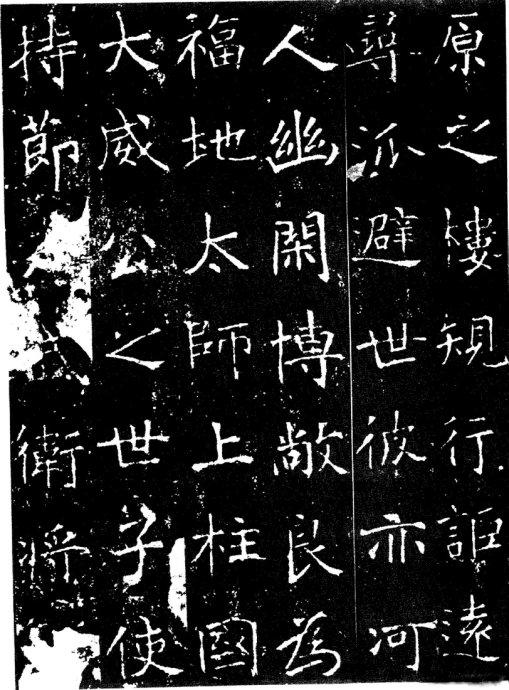 原之樓䂓行詎遠
尋派避世彼亦河
人幽閑博敞良為
福地太師上柱國
大威公之世子使
持節衛將